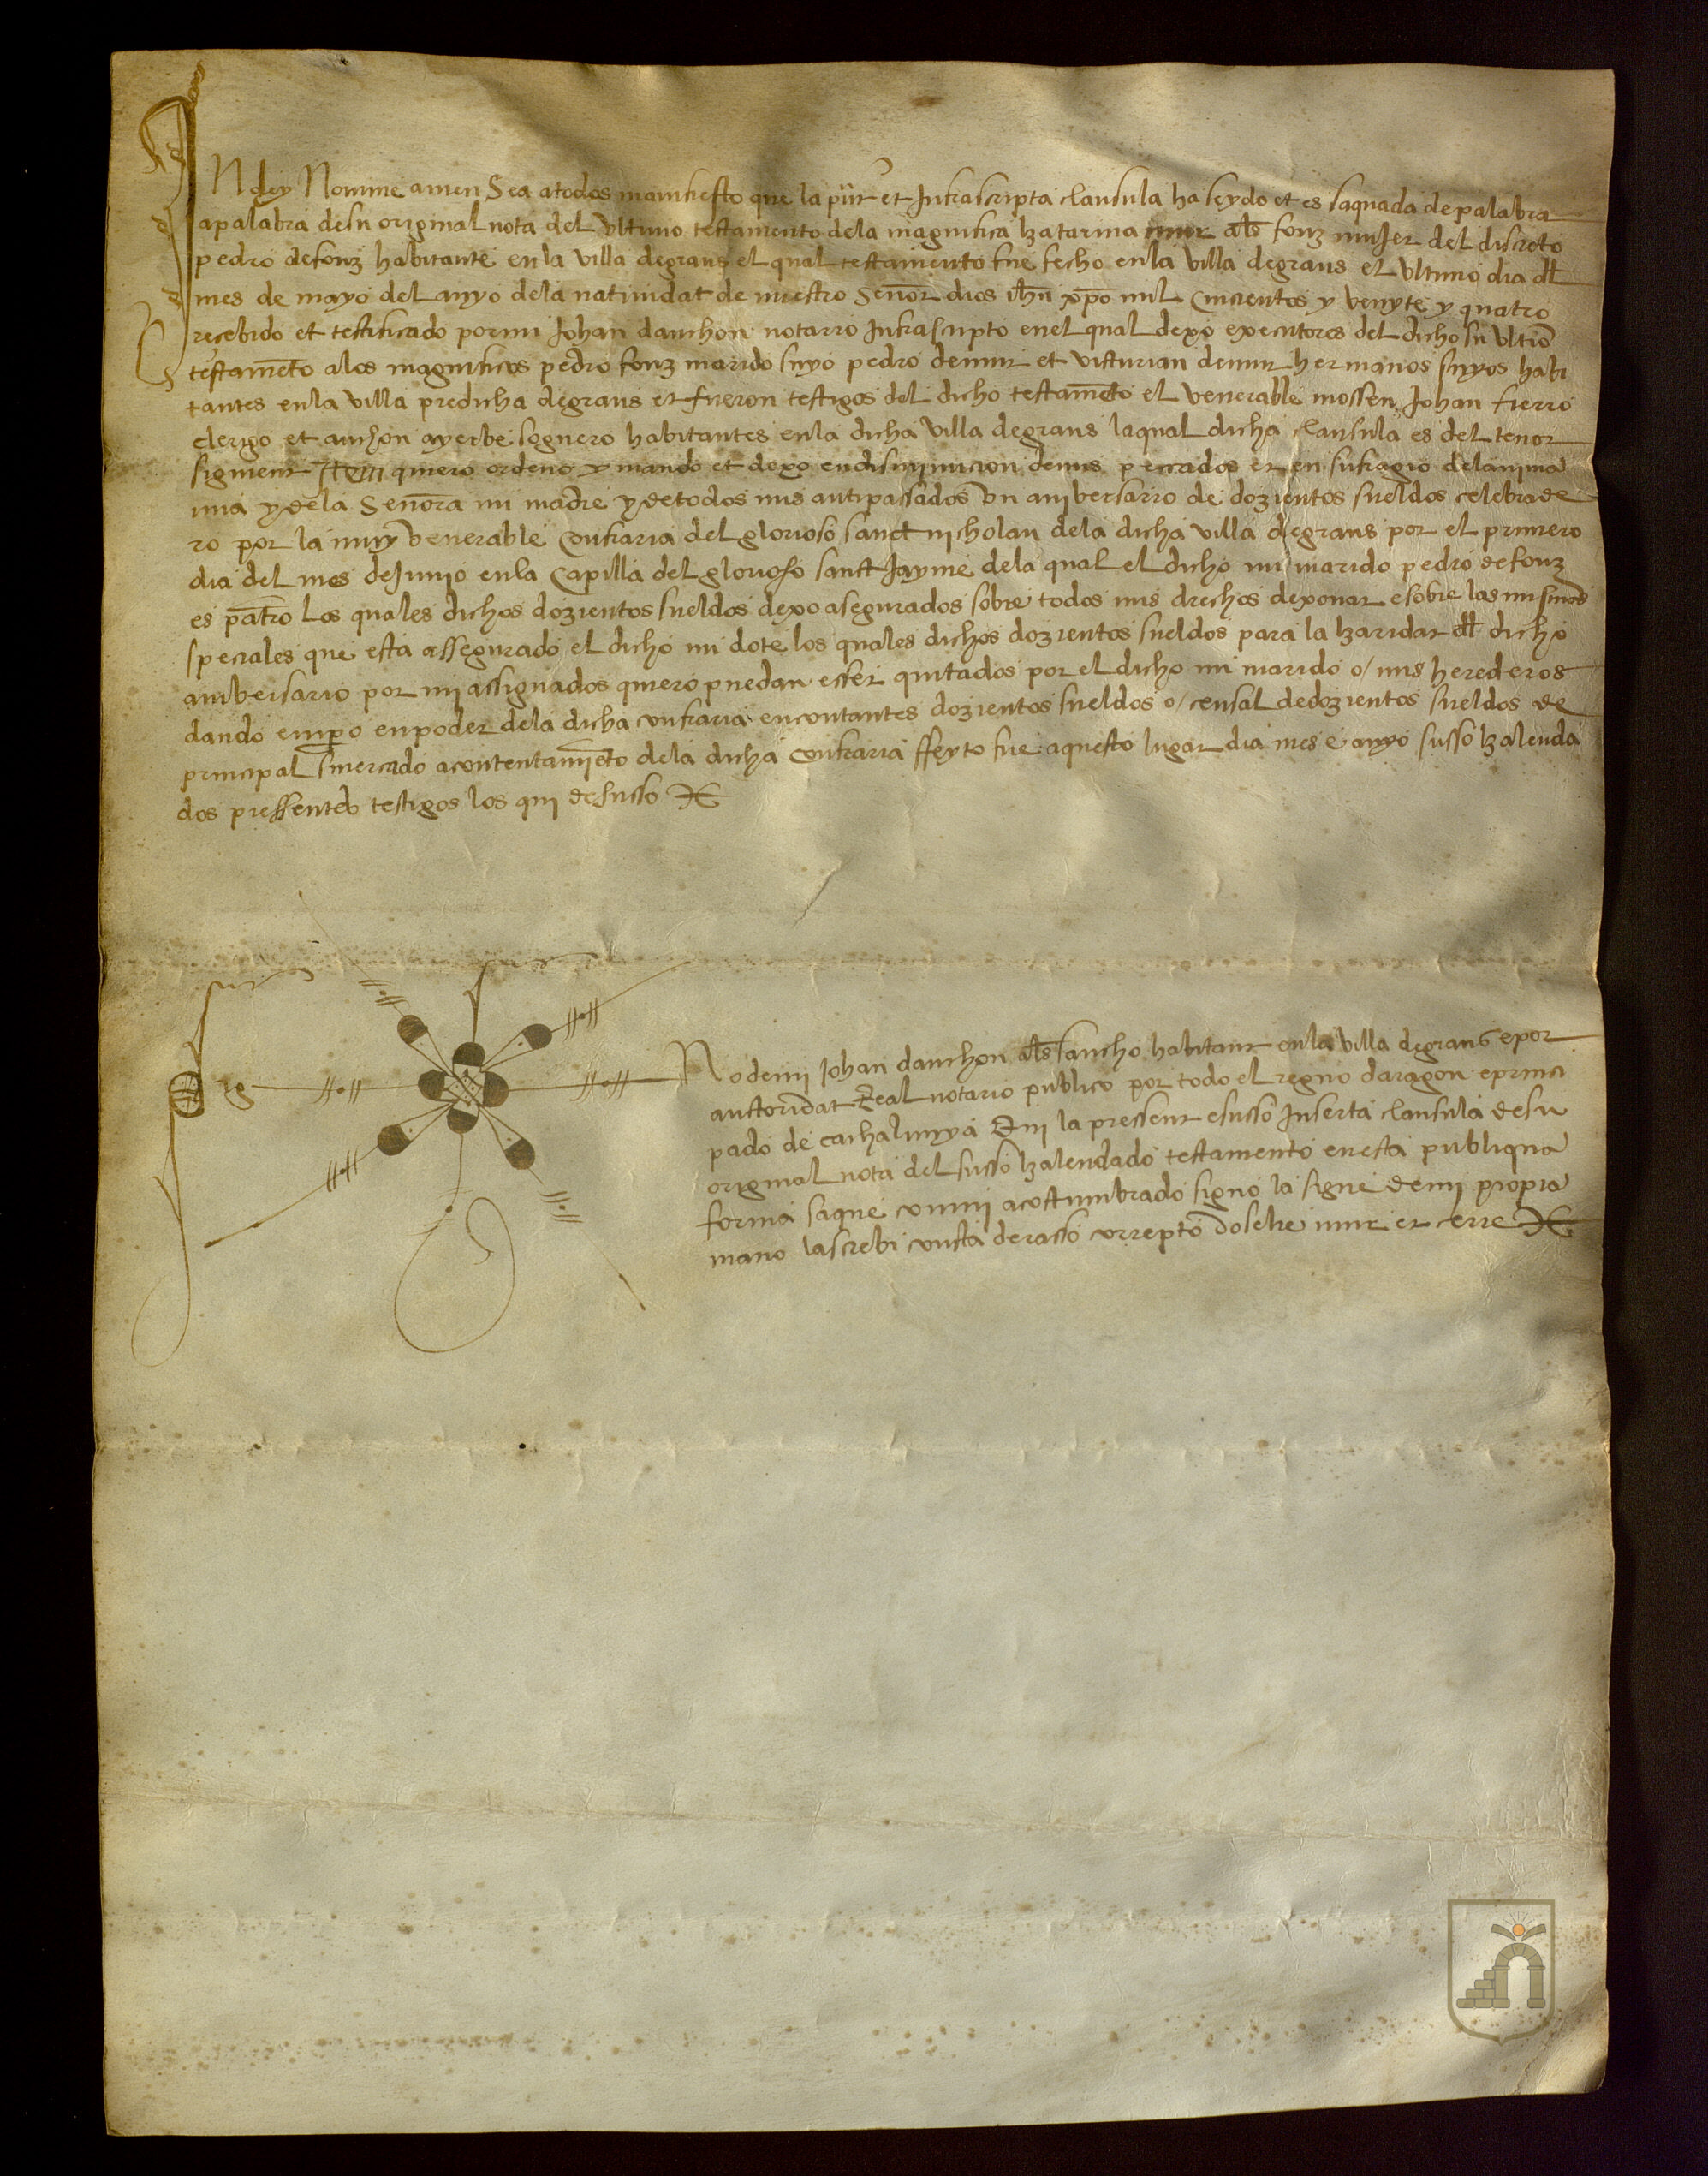 IN dey Nomine amen Sea atodos manifiesto que la pñt et Infrascripta clausula ha seydo et es saquada de palabra
apalabra desu original nota del Ultimo testamento dela magnifica katarina mur als fonz muJer del discreto
pedro defonz habitante enla villa degraus el qual testamento fue fecho enla villa degraus el Ultimo dia dl
mes de mayo del anyo dela natiuidat de nuestro Señor dios ihu xpo mil Cincientos y venyte y quatro
recebido et testificado pormi Johan danchon notario Infrascripto enel qual dexo executores del dicho su Ultio
testameto alos magnificos pedro fonz marido suyo pedro demur et visturian demur hermanos suyos habi
tantes enla villa predicha degraus et fueron testigos del dicho testameto el venerable mossen Johan fierro
clerigo et anchon ayerbe soguero habitantes enla dicha villa degraus laqual dicha clausula es del tenor
siguient Item quiero ordeno y mando et dexo endisminucion demis peccados et en sufragio delanima
mia y dela Señora mi madre y detodos mis antipassados Un aniversario de dozientos sueldos celebrade
ro por la muy venerable Confraria del glorioso sanct nicholau dela dicha villa degraus por el primero
dia del mes deJunio enla Capilla del glorioso sanct Jayme dela qual el dicho mi marido pedro defonz
es patro Los quales dichos dozientos sueldos dexo asegurados sobre todos mis drechos dexouar e sobre las
speciales que esta assegurado el dicho mi dote los quales dichos dozientos sueldos para la karidat dl dicho
aniversario por mi assignados quiero puedan esser quitados por el dicho mi marido o/ mis herederos
dando empo enpoder dela dicha confraria encontantes dozientos sueldos o/ censal dedozientos sueldos de
principal smercado acontentamieto dela dicha Confraria ffeyto fue aquesto lugar dia mes e anyo susso kalenda
dos pressentes testigos los qui desusso
Sig no demi Johan danchon als sancho habitant enla villa degraus epor
auctoridat Real notario publico por todo el regno daragon eprinci
pado de cathalunya Qui la pressent esusso Inserta clausula desu
original nota del susso kalendado testamento enesta publiqua
forma saque conmi acostumbrado signo la signe demi propia
mano lascrebi consta derasso correpto doselie mur et cerre